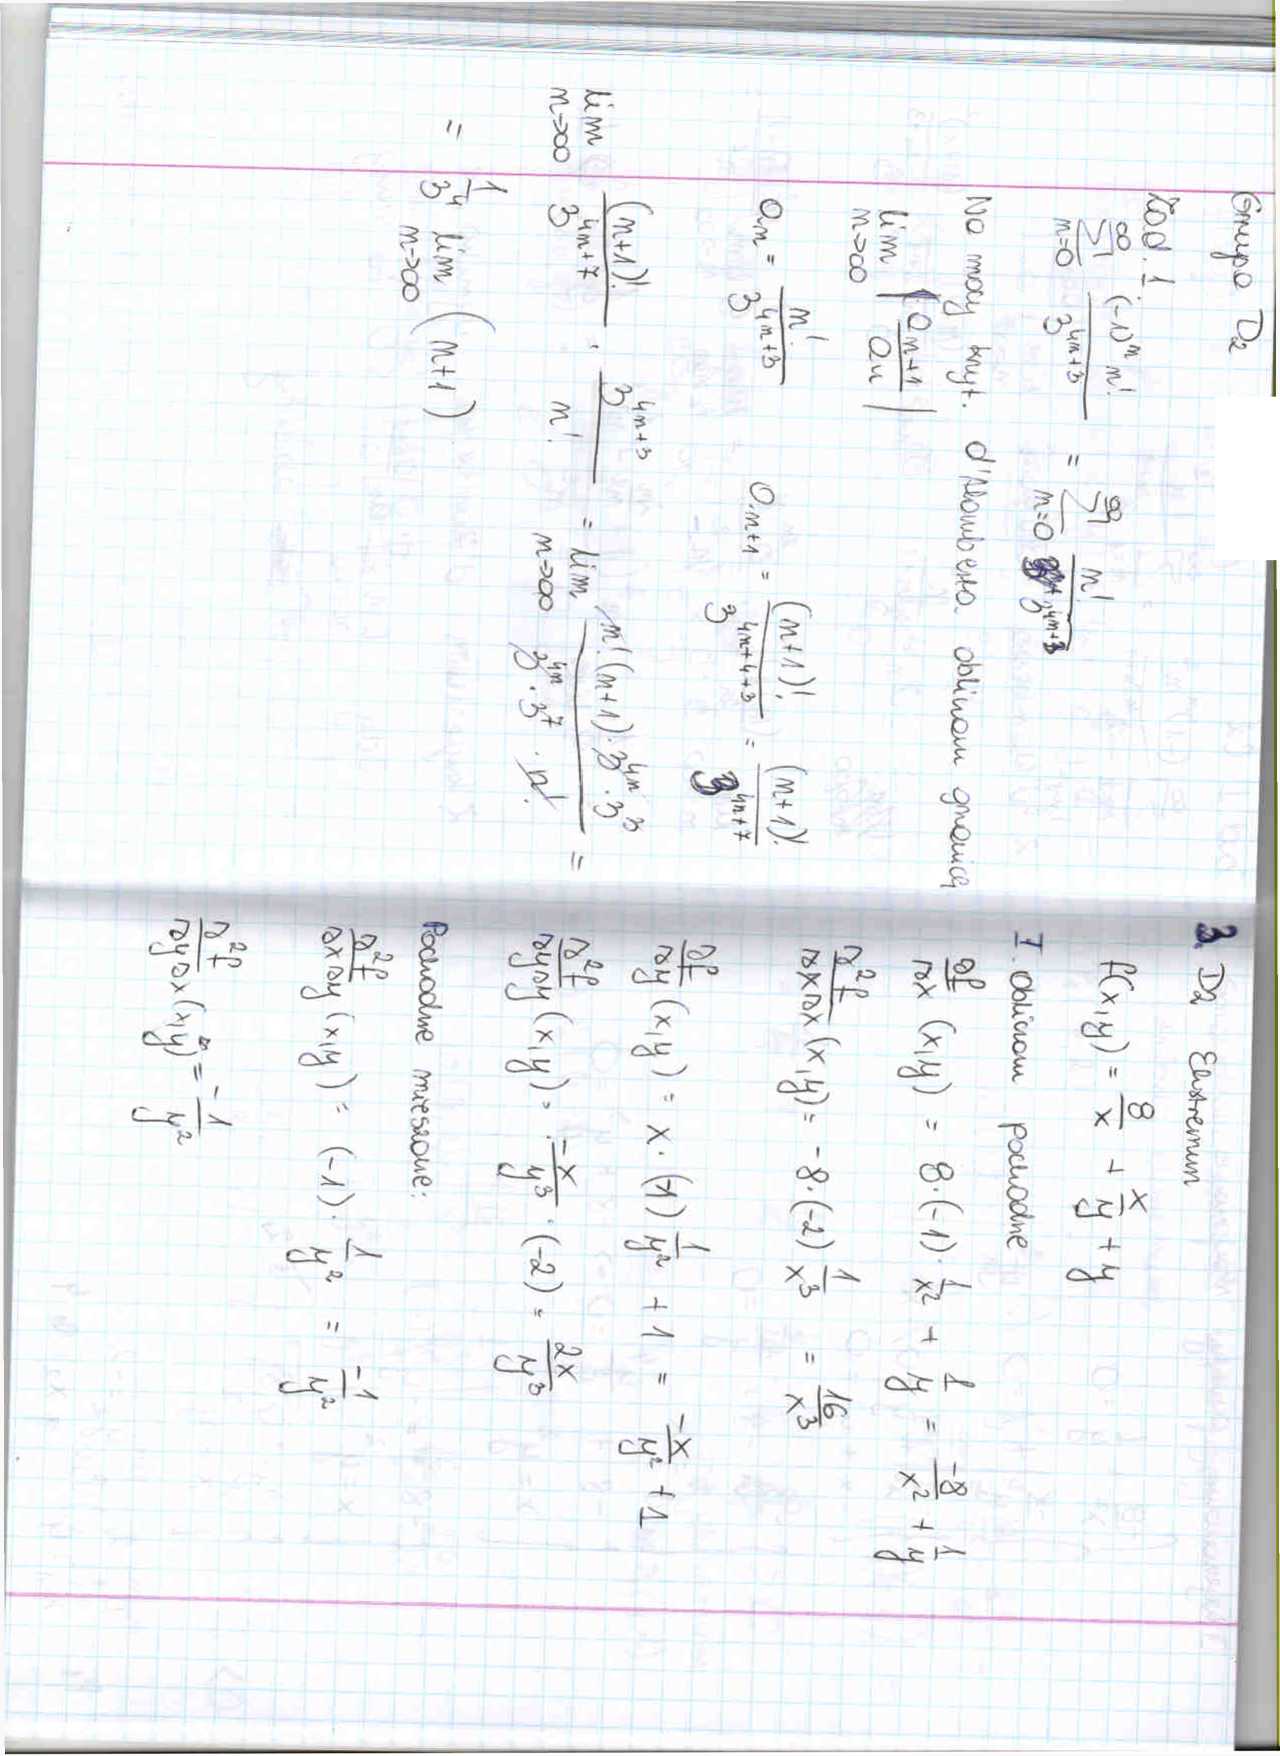 Grupa D2
Zad. 1.
∞ Σ n=0 (-1)^n n! / 3^(4n+3) = ∞ Σ n=0 n! / 3^(4n+3)
Na mocy kryt. d'Alamberta obliczam granicę
lim n→∞ |a_(n+1) / a_n|
a_n = n! / 3^(4n+3) a_(n+1) = (n+1)! / 3^(4n+4+3) = (n+1)! / 3^(4n+7)
lim n→∞ (n+1)! / 3^(4n+7) · 3^(4n+3) / n! = lim n→∞ n! (n+1) · 3^(4n) · 3^3 / 3^(4n) · 3^7 · n! =
= 1/3^4 lim n→∞ (n+1)
3. D2 Ekstremum
f(x,y) = 8/x + x/y + y
I. obliczam pochodne
∂f/∂x (x,y) = 8·(-1)· 1/x² + 1/y = -8/x² + 1/y
∂²f/∂x∂x (x,y) = -8·(-2) 1/x³ = 16/x³
∂f/∂y (x,y) = x·(-1) 1/y² + 1 = -x/y² + 1
∂²f/∂y∂y (x,y) = -x/y³ · (-2) = 2x/y³
Pochodne mieszane:
∂²f/∂x∂y (x,y) = (-1) · 1/y² = -1/y²
∂²f/∂y∂x (x,y) = -1/y²